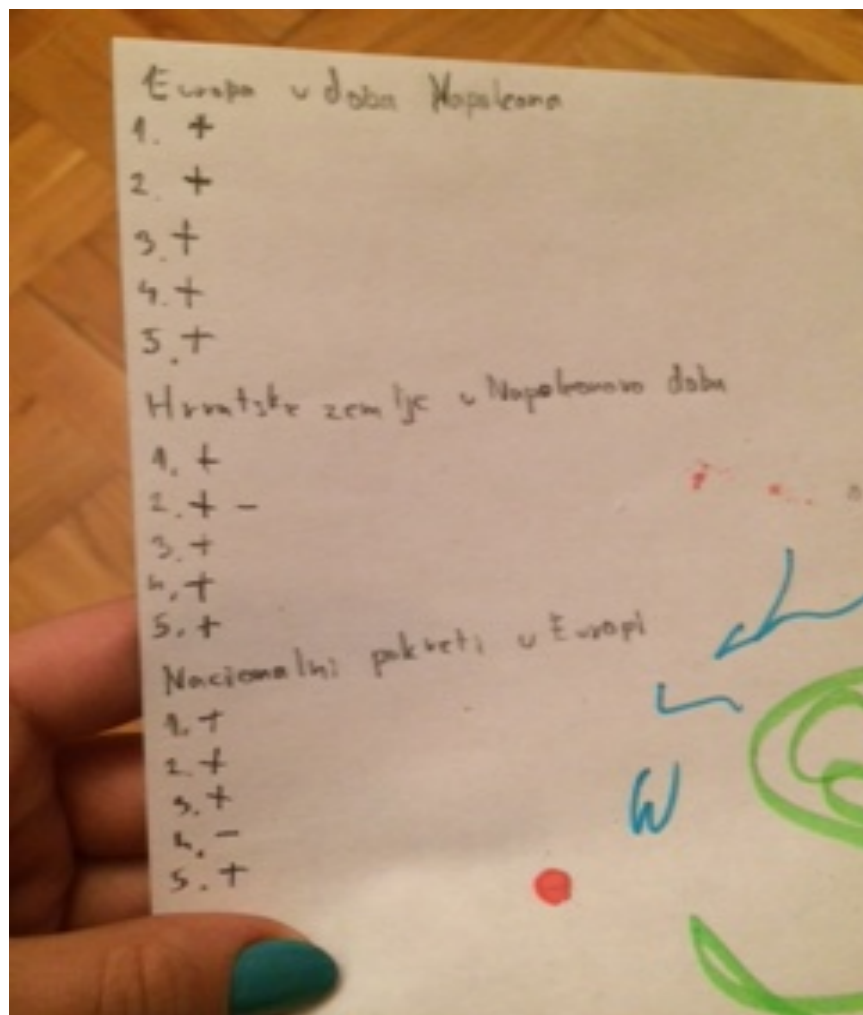 Europa u doba Napoleona
1. +
2. +
3. +
4. +
5. +
Hrvatske zemlje u Napoleonovo doba
1. +
2. + -
3. +
4. +
5. +
Nacionalni pokreti u Europi
1. +
2. +
3. +
4. -
5. +
W